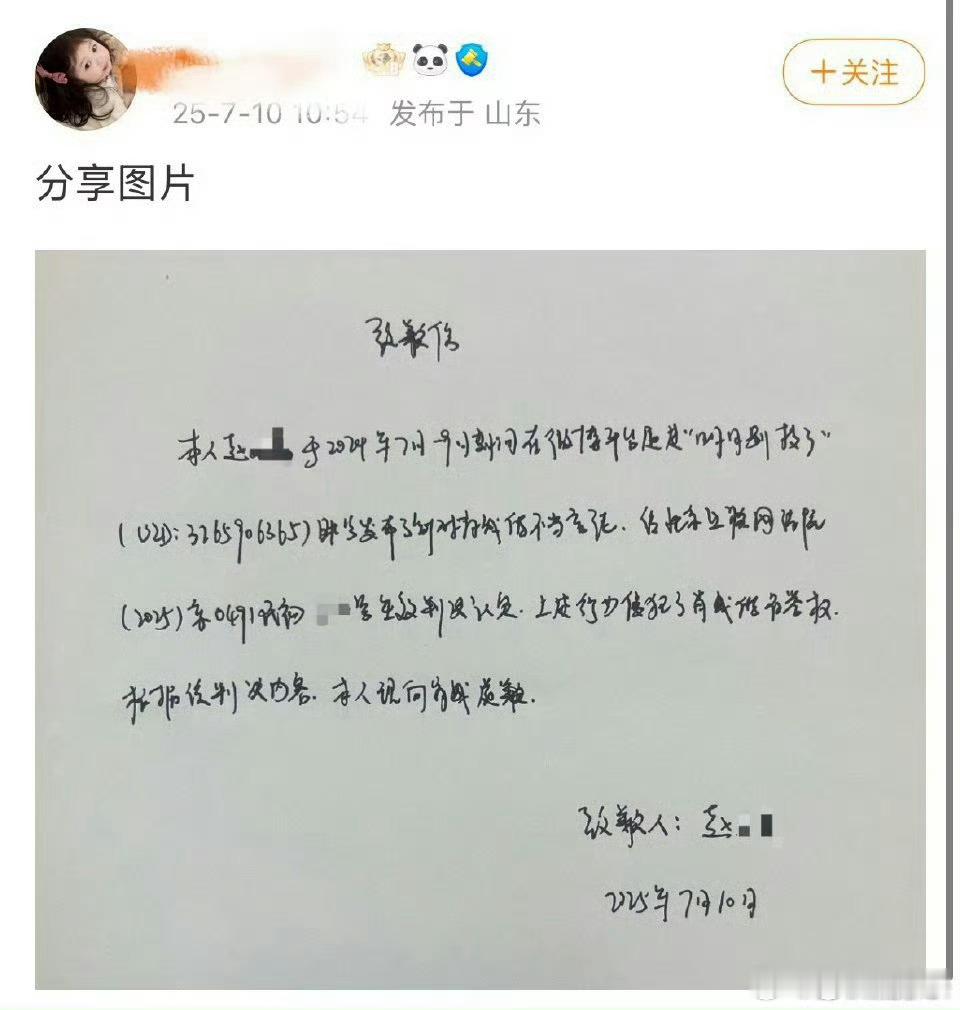 25-7-10 10:54 发布于 山东
+关注
分享图片
致歉信
本人赵 于2024年7月-9月期间在微博平台通过"
(UID:3265906365)账号发布了针对肖战的不当言论.经北京互联网法院
(2025)京0491民初 号生效判决认定.上述行为侵犯了肖战的名誉权.
根据该判决内容.本人现向肖战道歉.
致歉人:赵
2025年7月10日